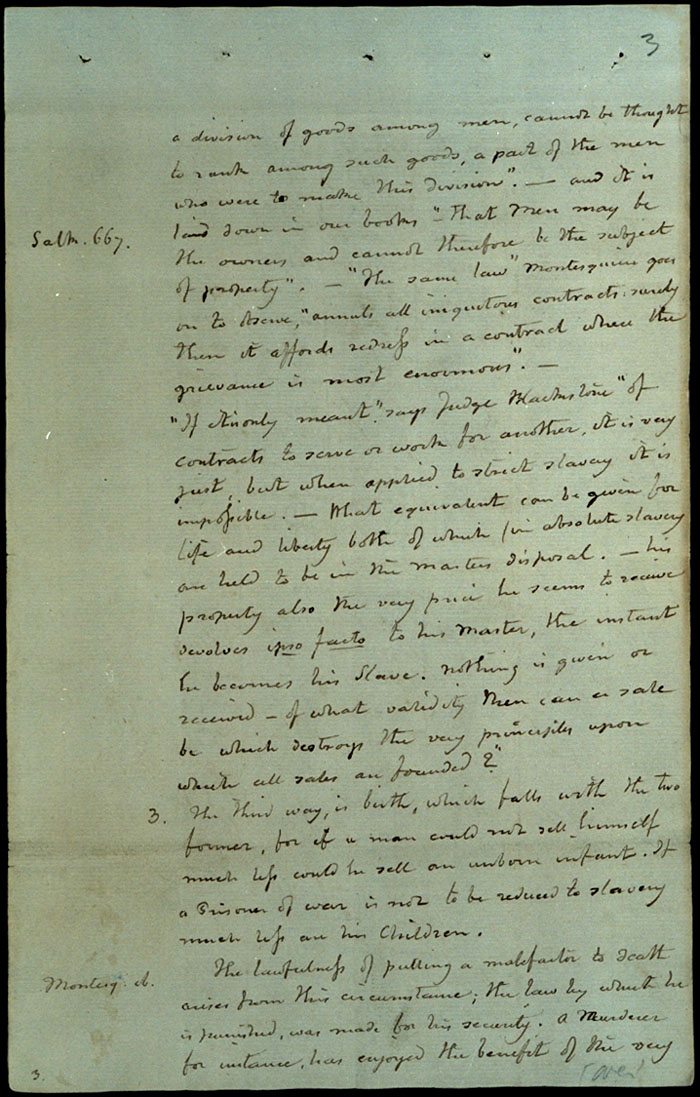 3
a division of goods among men, cannot be thought
to rank among such goods, a part of the men
who were to make this division". — and it is
Salk. 667.
laid down in our books "that Men may be
the owners and cannot therefore be the subject
of property". — "The same law" Montesquieu goes
on to observe, "annuls all iniquitous contracts surely
then it affords redress in a contract where the
grievance is most enormous". —
"If it only meant" says Judge Blackstone "of
contracts to serve or work for another, it is very
just, but when applied to strict slavery it is
impossible. — What equivalent can be given for
life and liberty both of which (in absolute slavery
are held to be in the Masters disposal. — his
property also the very price he seems to receive
devolves ipso facto to his Master, the instant
he becomes his Slave. nothing is given or
received — of what validity then can a sale
be which destroys the very principles upon
which all sales are founded?"
3. The third way, is birth, which falls with the two
former, for if a man could not sell himself
much less could he sell an unborn infant. If
a Prisoner of war is not to be reduced to slavery
much less are his Children.
Montesq. ib.
The lawfulness of putting a malefactor to death
arises from this circumstance; the law by which he
is punished, was made for his security. A Murderer
for instance, has enjoyed the benefit of the very
3.